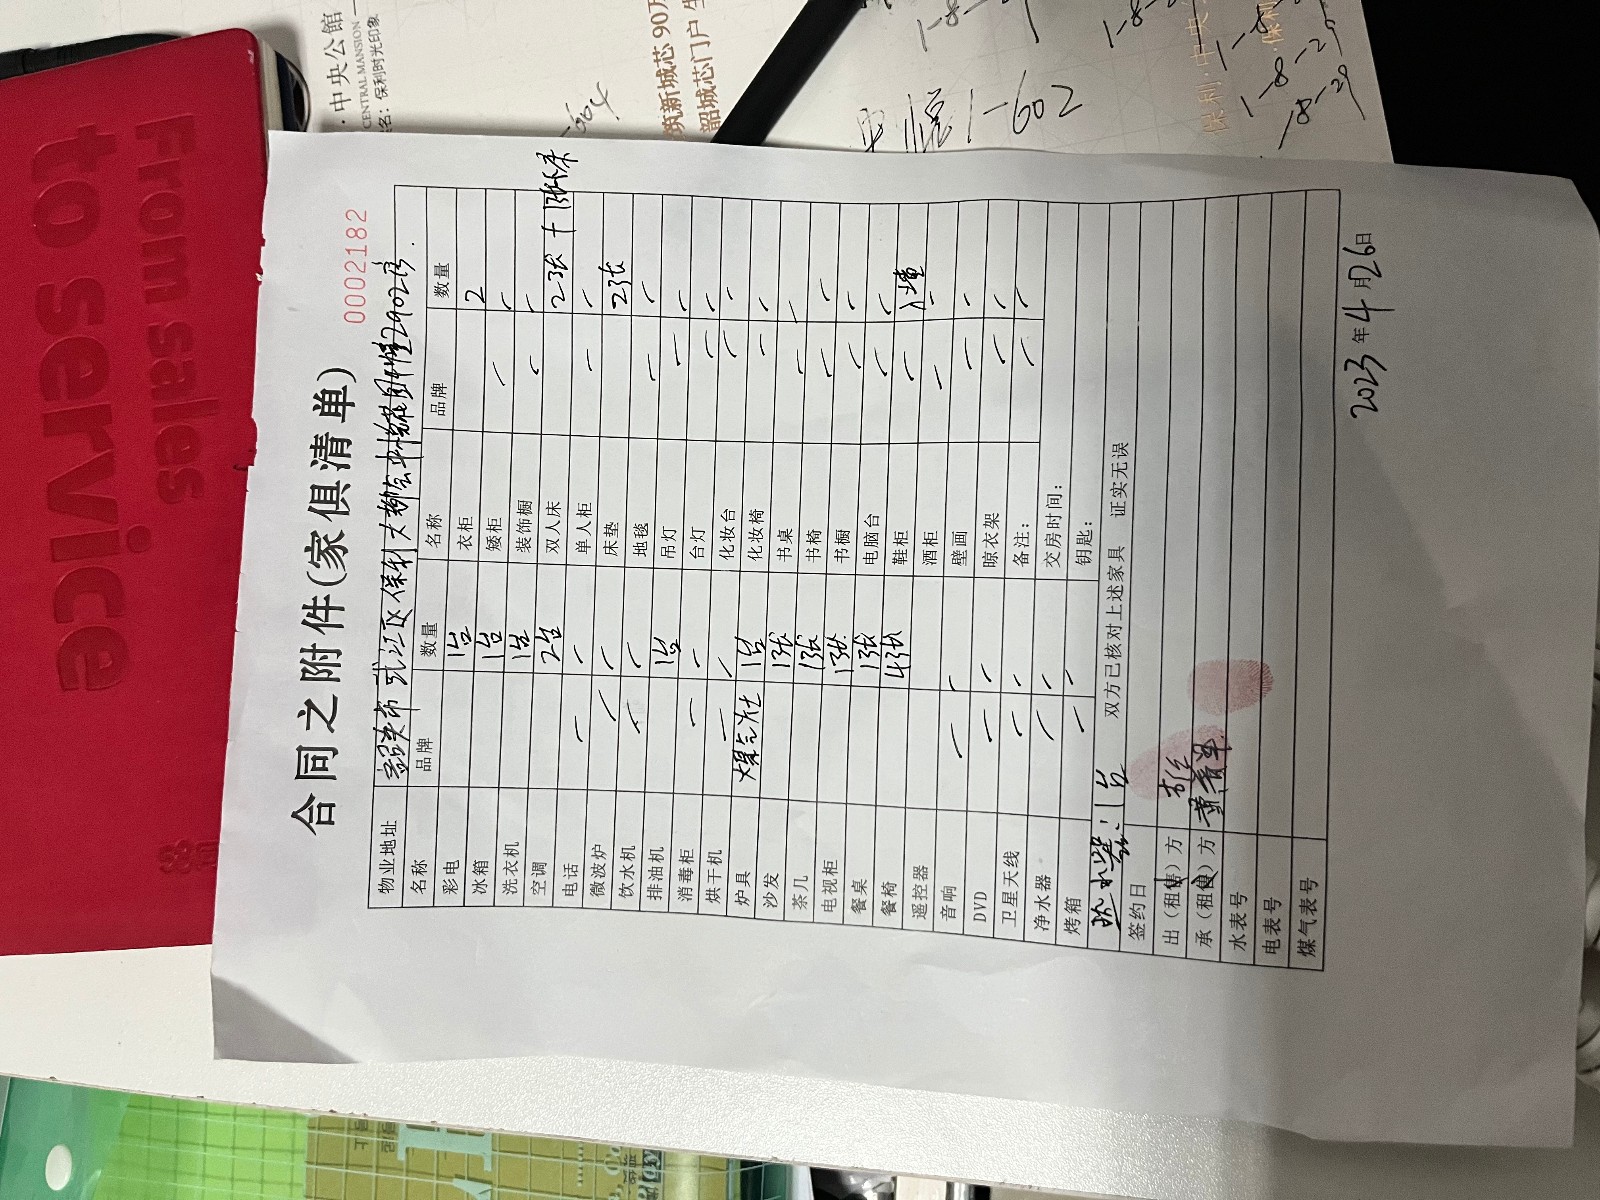 From sales
to service
·中央公館
CENTRAL MANSION
名：保利时光印象
筑新城芯 90万
韶城芯门户
1-602
1-8-29
-8-29
保利·中央
0002182
合同之附件(家俱清单)
物业地址 韶关市武江区保利大都会中悦花园1幢2902房.
名称 品牌 数量 名称 品牌 数量
彩电 1台 衣柜 2
冰箱 1台 矮柜 / /
洗衣机 1台 装饰橱 / /
空调 2台 双人床 2张+1张床
电话 / / 单人柜 / /
微波炉 / / 床垫 2张
饮水机 / / 地毯 / /
排油机 1台 吊灯 / /
消毒柜 / / 台灯 / /
烘干机 / / 化妆台 / /
炉具 煤气灶 1台 化妆椅 / /
沙发 1张 书桌 / /
茶几 1张 书椅 / /
电视柜 1张 书橱 / /
餐桌 1张 电脑台 / /
餐椅 4张 鞋柜 /
遥控器 酒柜 / /
音响 / / 壁画 / /
DVD / / 晾衣架 / /
卫星天线 / / 备注： / /
净水器 / / 交房时间：
烤箱 / / 钥匙：
热水器：1台 双方已核对上述家具 证实无误
签约日
出（租售）方
承（租售）方 黄
水表号
电表号
煤气表号
2023年4月26日